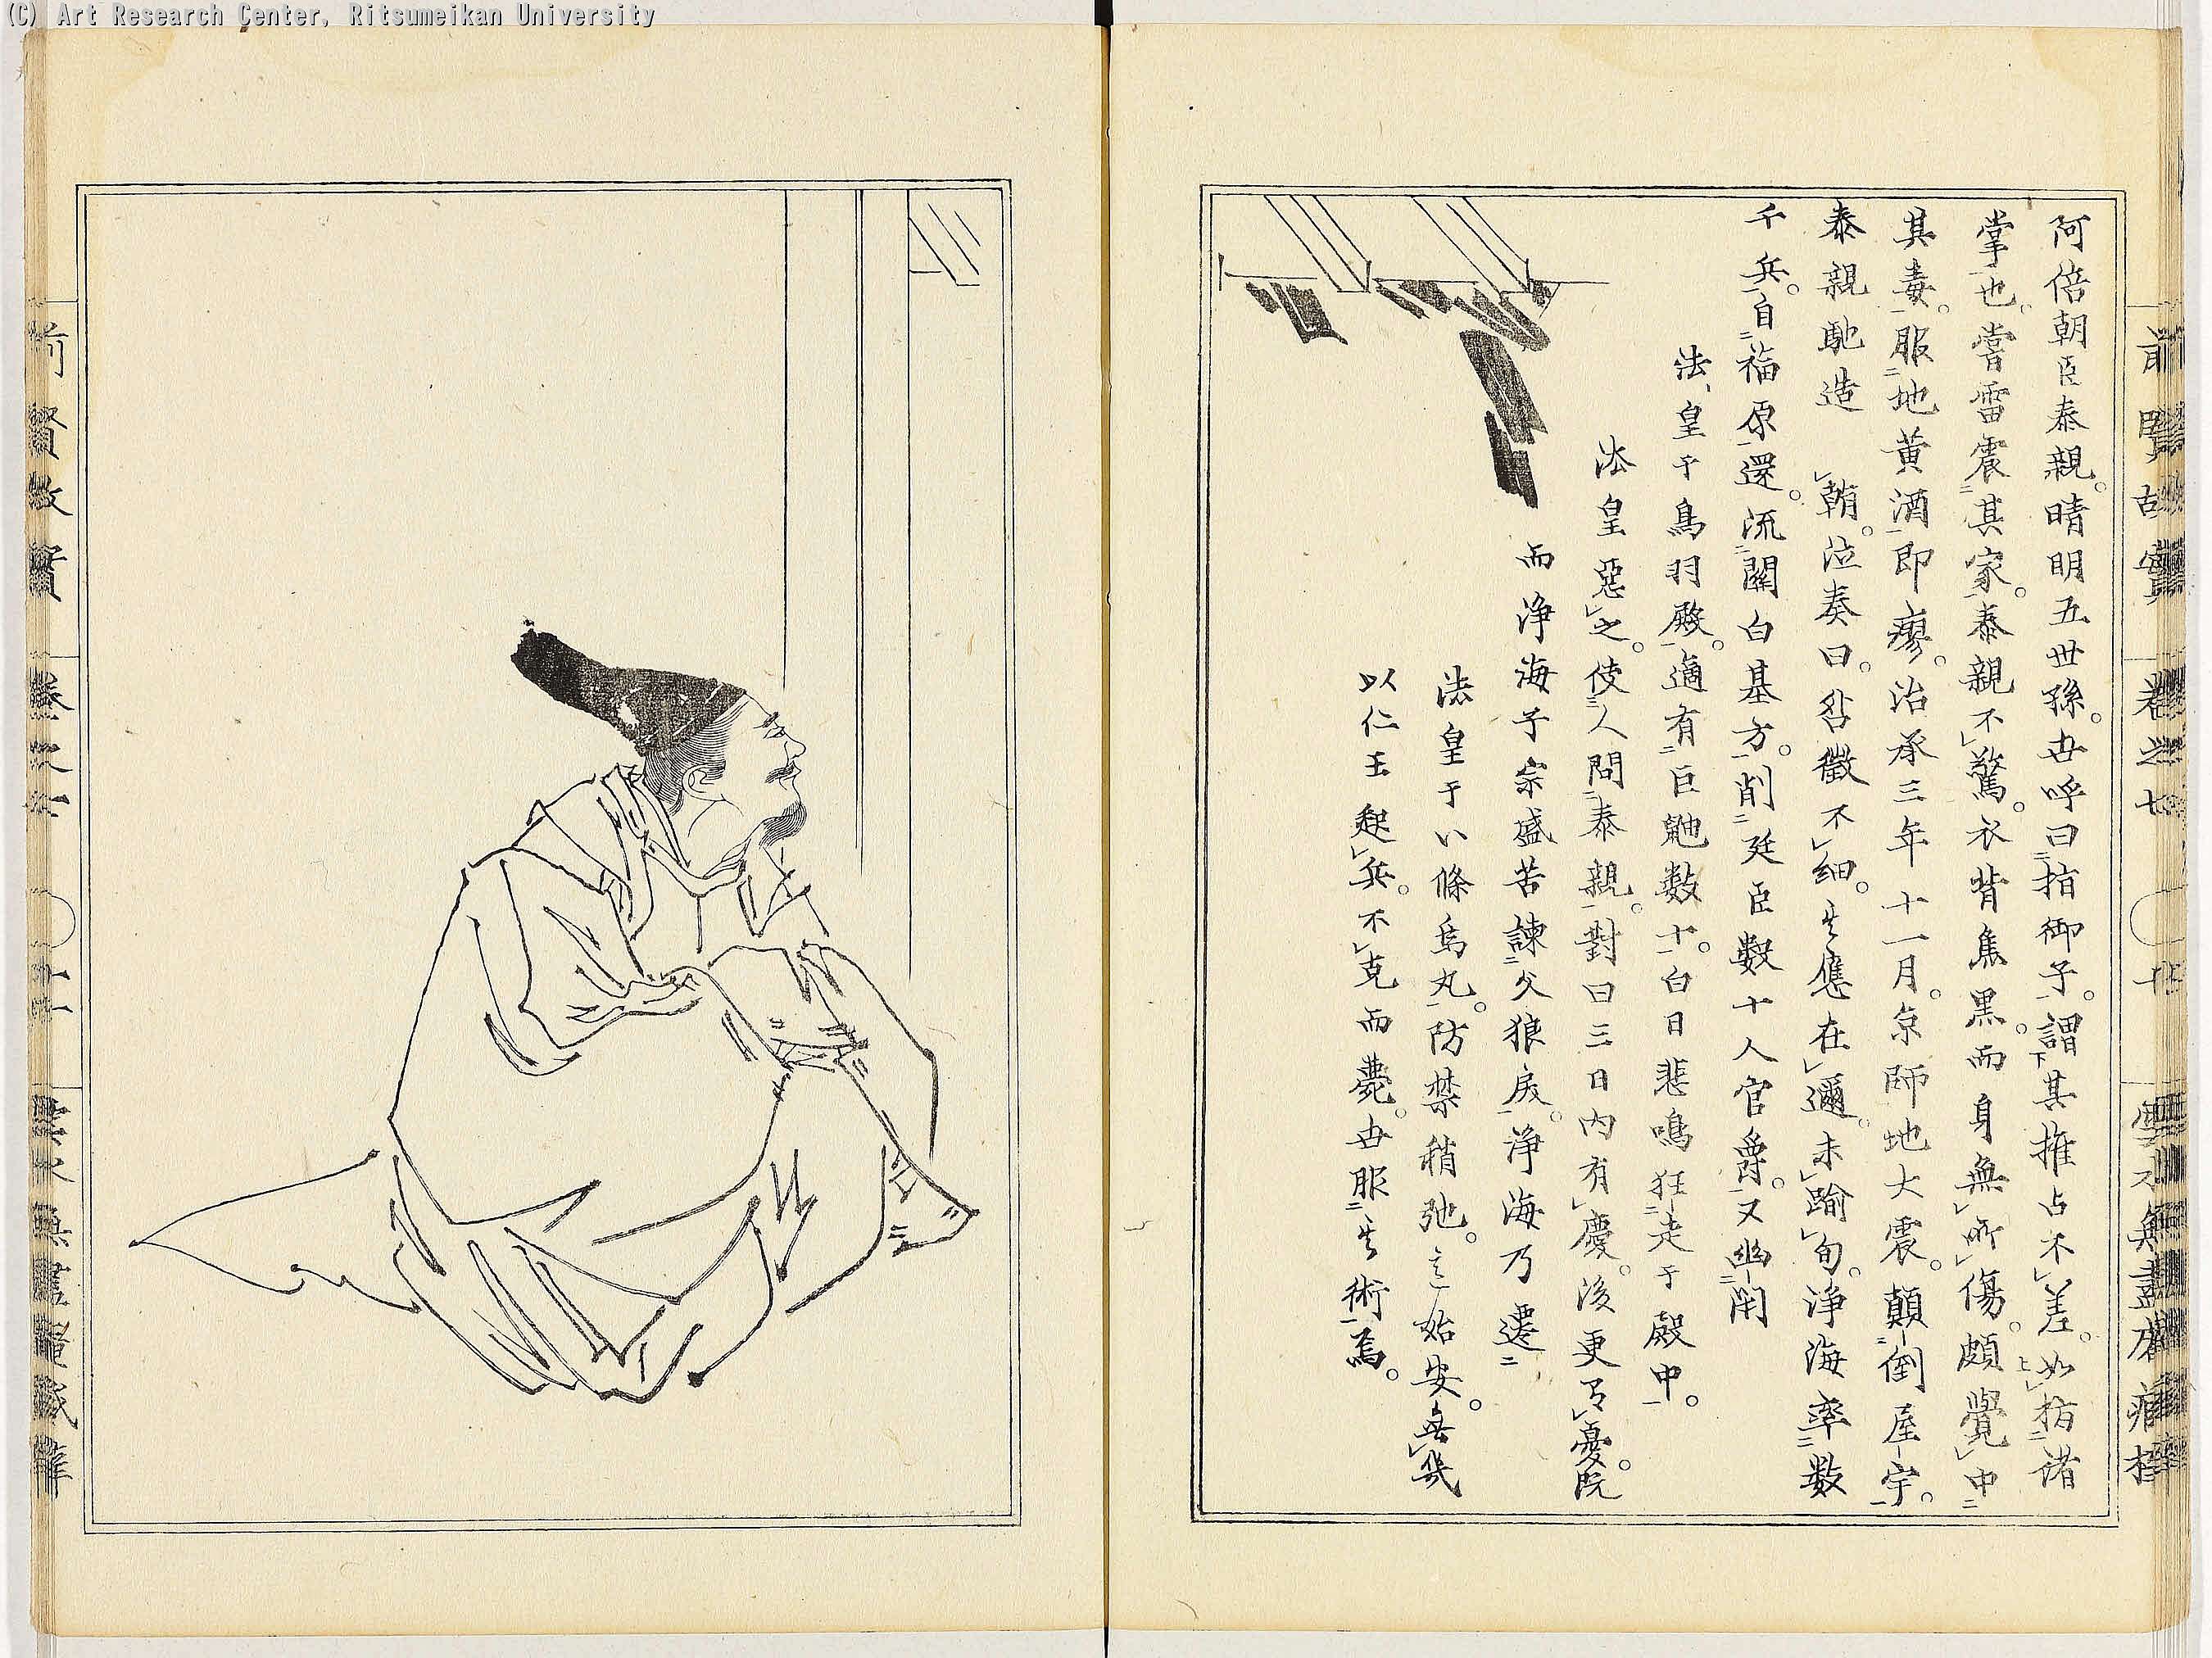 (C) Art Research Center, Ritsumeikan University
阿倍朝臣泰親。晴明五世孫。世呼曰指御子。謂其推占不差。如指諸
掌也。嘗雷震其家。泰親不驚。衣背焦黒。而身無所傷。頗覺中
其毒。服地黄酒即瘳。治承三年十一月。京師地大震。顛倒屋宇。
泰親馳造
朝。泣奏曰。咎徴不細。其應在邇。未踰旬。浄海率数
千兵。自福原還。流關白基方。削廷臣数十人官爵。又幽閉
法皇于鳥羽殿。適有巨鼬数十。白日悲鳴狂走于殿中。
法皇惡之。使人問泰親。對曰三日内有慶。後更有憂。既
而浄海子宗盛苦諫父狼戻。浄海乃遷
法皇于八條烏丸。防禁稍弛。意始安。無幾
以仁王起兵。不克而薨。世服其術焉。
前賢故實
卷之七
前賢故實